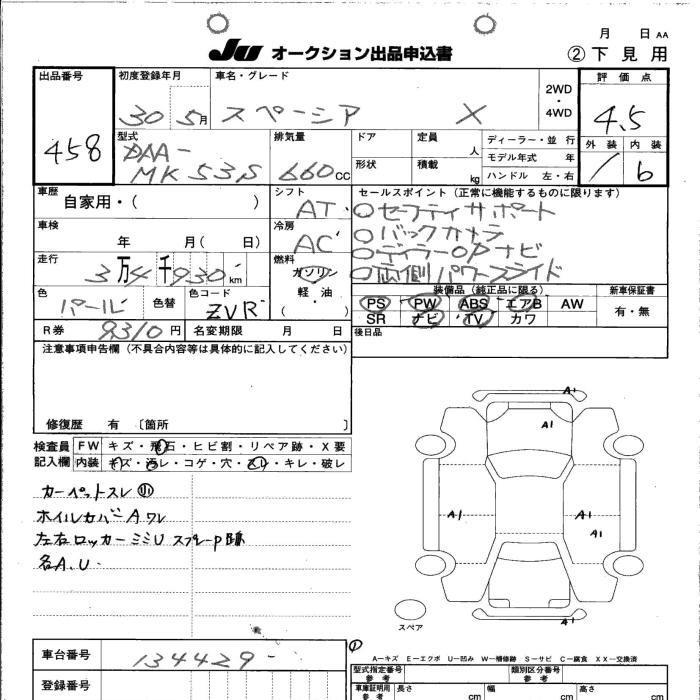 月 日 AA
JU オークション出品申込書 ②下見用
出品番号 初度登録年月 車名・グレード 評価点
458 30 5月 スペーシア X 2WD・4WD 4.5
型式 排気量 ドア 定員 ディーラー・並行 外装 内装
DAA- 人 モデル年式 年
MK53S 660cc 形状 積載 kg ハンドル 左・右 / 6
車歴 シフト セールスポイント(正常に機能するものに限ります)
自家用・( ) AT ○セーフティサポート
車検 冷房 ○バックカメラ
年 月( 日) AC ○ディーラーOPナビ
走行 燃料
3万4千930km ガソリン ○左側パワースライド
色 色替 色コード 軽・油 装備品(純正品に限る) 新車保証書
パール ZVR ( ) PS PW ABS エアB AW 有・無
SR ナビ TV カワ
R券 9310円 名変期限 月 日 後日品
注意事項申告欄(不具合内容等は具体的に記入してください)
修復歴 有 〔箇所 〕
検査員 FW キズ・飛石・ヒビ割・リペア跡・X要
記入欄 内装 キズ・汚レ・コゲ・穴・スレ・キレ・破レ
カーペットスレ 小
ホイルカバーA ワレ
左右ロッカーミミU スプレーP跡
各A.U
A1
A1
A1 A1
A1
A1
スペア
車台番号 134429-
登録番号
A－キズ E－エクボ U－凹み W－補修跡 S－サビ C－腐食 XX－交換済
型式指定番号 参考 類別区分番号 参考
車庫証明用 参考 長さ cm 幅 cm 高さ cm